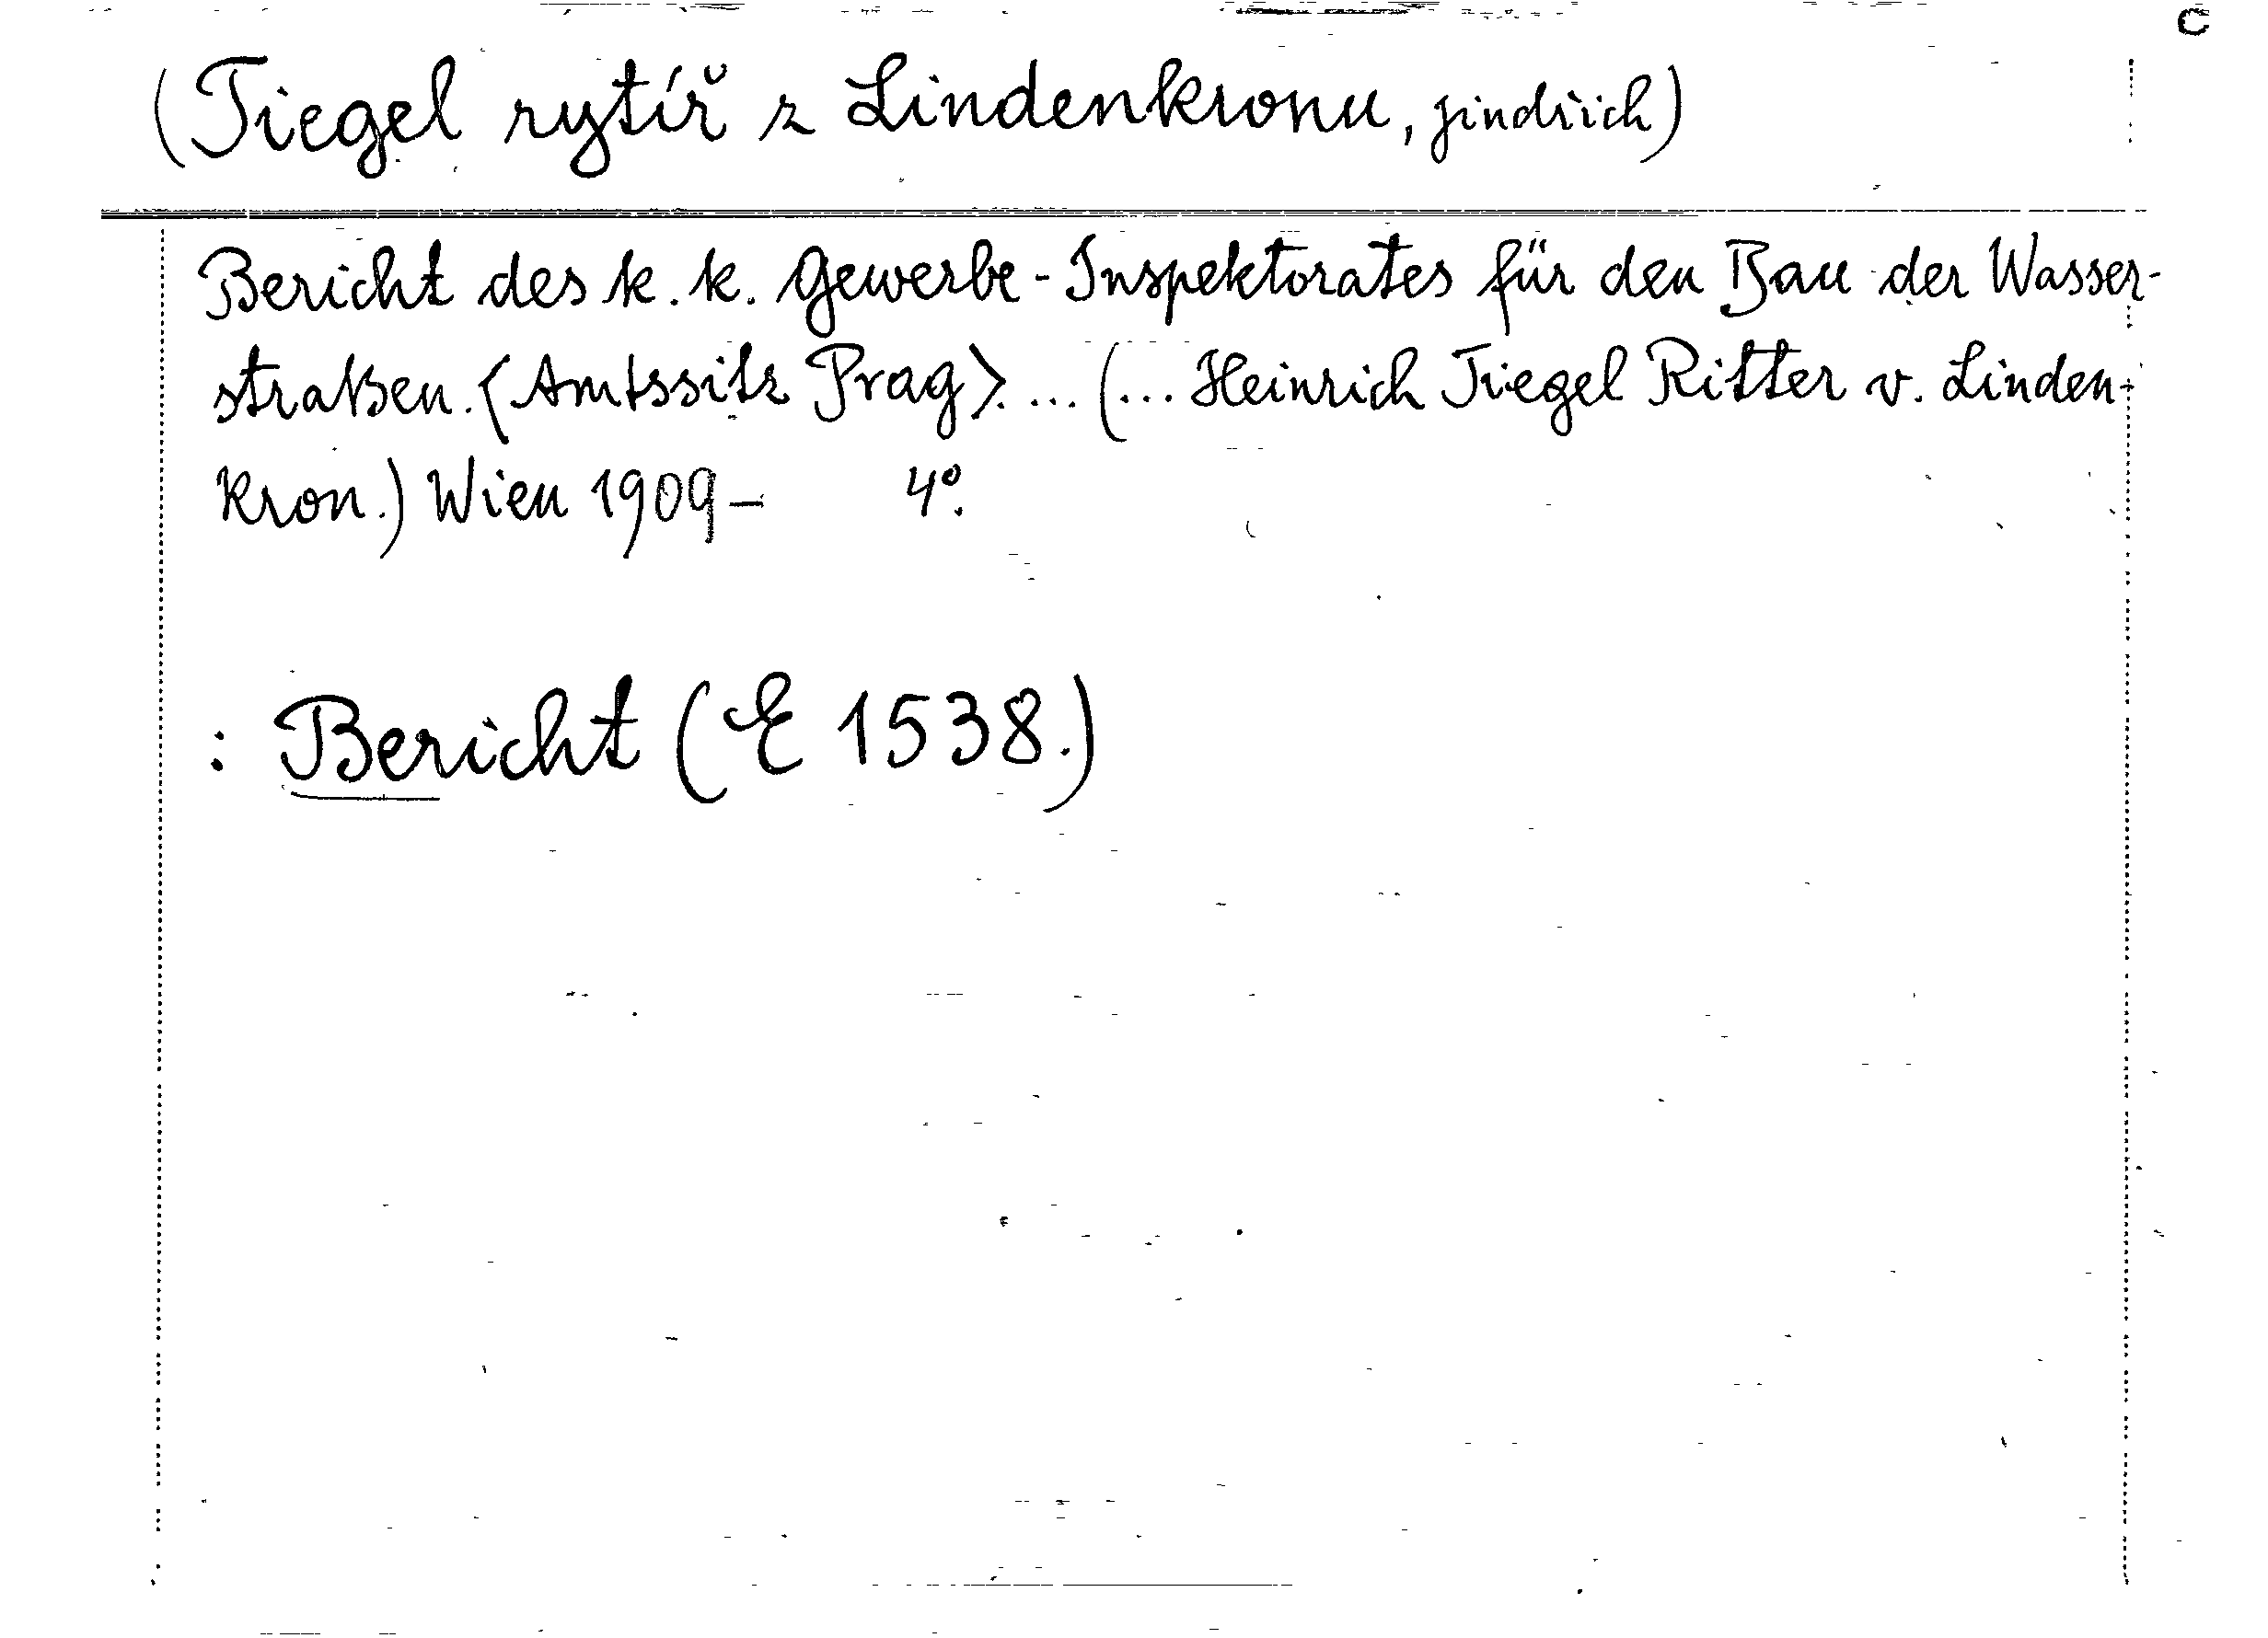 C
(Tiegel rytíř z Lindenkronu, Jindřich)
Bericht des k. k. Gewerbe-Inspektorates für den Bau der Wasser-
straßen. (Amtssitz Prag). ... (... Heinrich Tiegel Ritter v. Linden-
kron.) Wien 1909- 4°.
: Bericht (E 1538.)